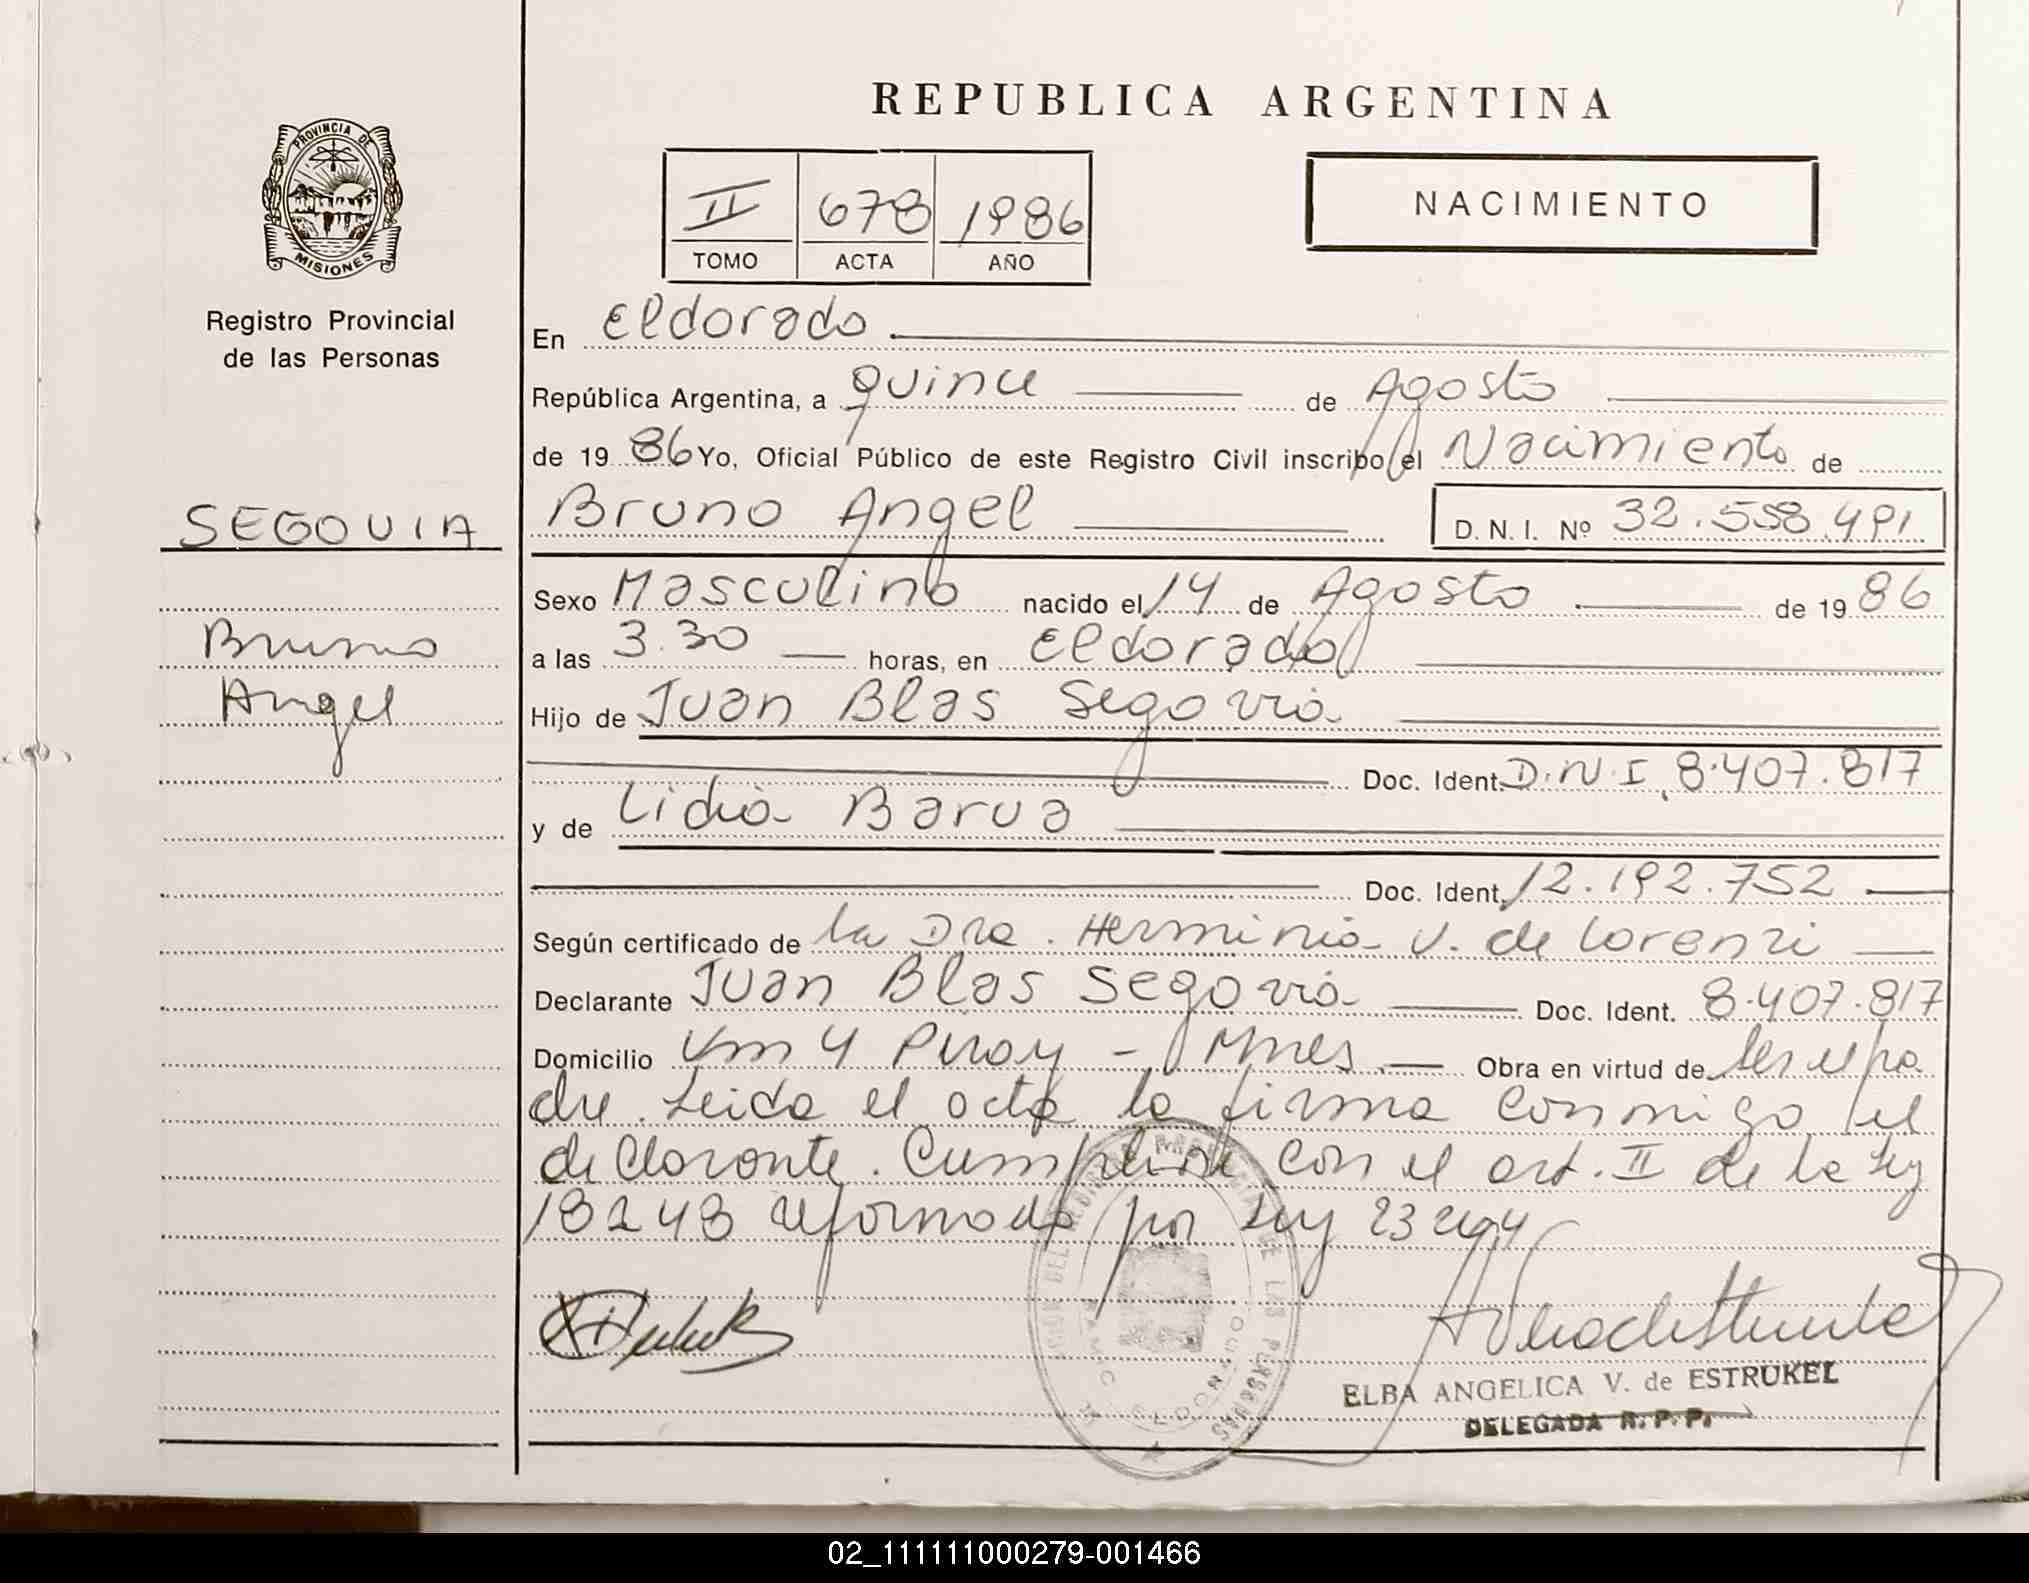 REPUBLICA ARGENTINA
PROVINCIA DE
MISIONES
Registro Provincial
de las Personas
II 678 1986
TOMO ACTA AÑO
NACIMIENTO
SEGOVIA
Bruno
Angel
En Eldorado
República Argentina, a quince de Agosto
de 1986 Yo, Oficial Público de este Registro Civil inscribo el Nacimiento de
Bruno Angel D. N. I. Nº 32.558.491
Sexo Masculino nacido el 14 de Agosto de 1986
a las 3.30 horas, en Eldorado
Hijo de Juan Blas Segovia
Doc. Ident. D.N.I. 8.407.817
y de Lidia Barua
Doc. Ident. 12.192.752
Según certificado de la Dra. Herminia V. de Lorenzi
Declarante Juan Blas Segovia Doc. Ident. 8.407.817
Domicilio Km 4 Piray - Mnes Obra en virtud de ser el pa
dre. Leida el acta la firma conmigo el
declarante. Cumplese con el art. II de la Ley
18248 reformado por Ley
ELBA ANGELICA V. de ESTRUKEL
DELEGADA R. P. P.
ELDORADO
02_111111000279-001466